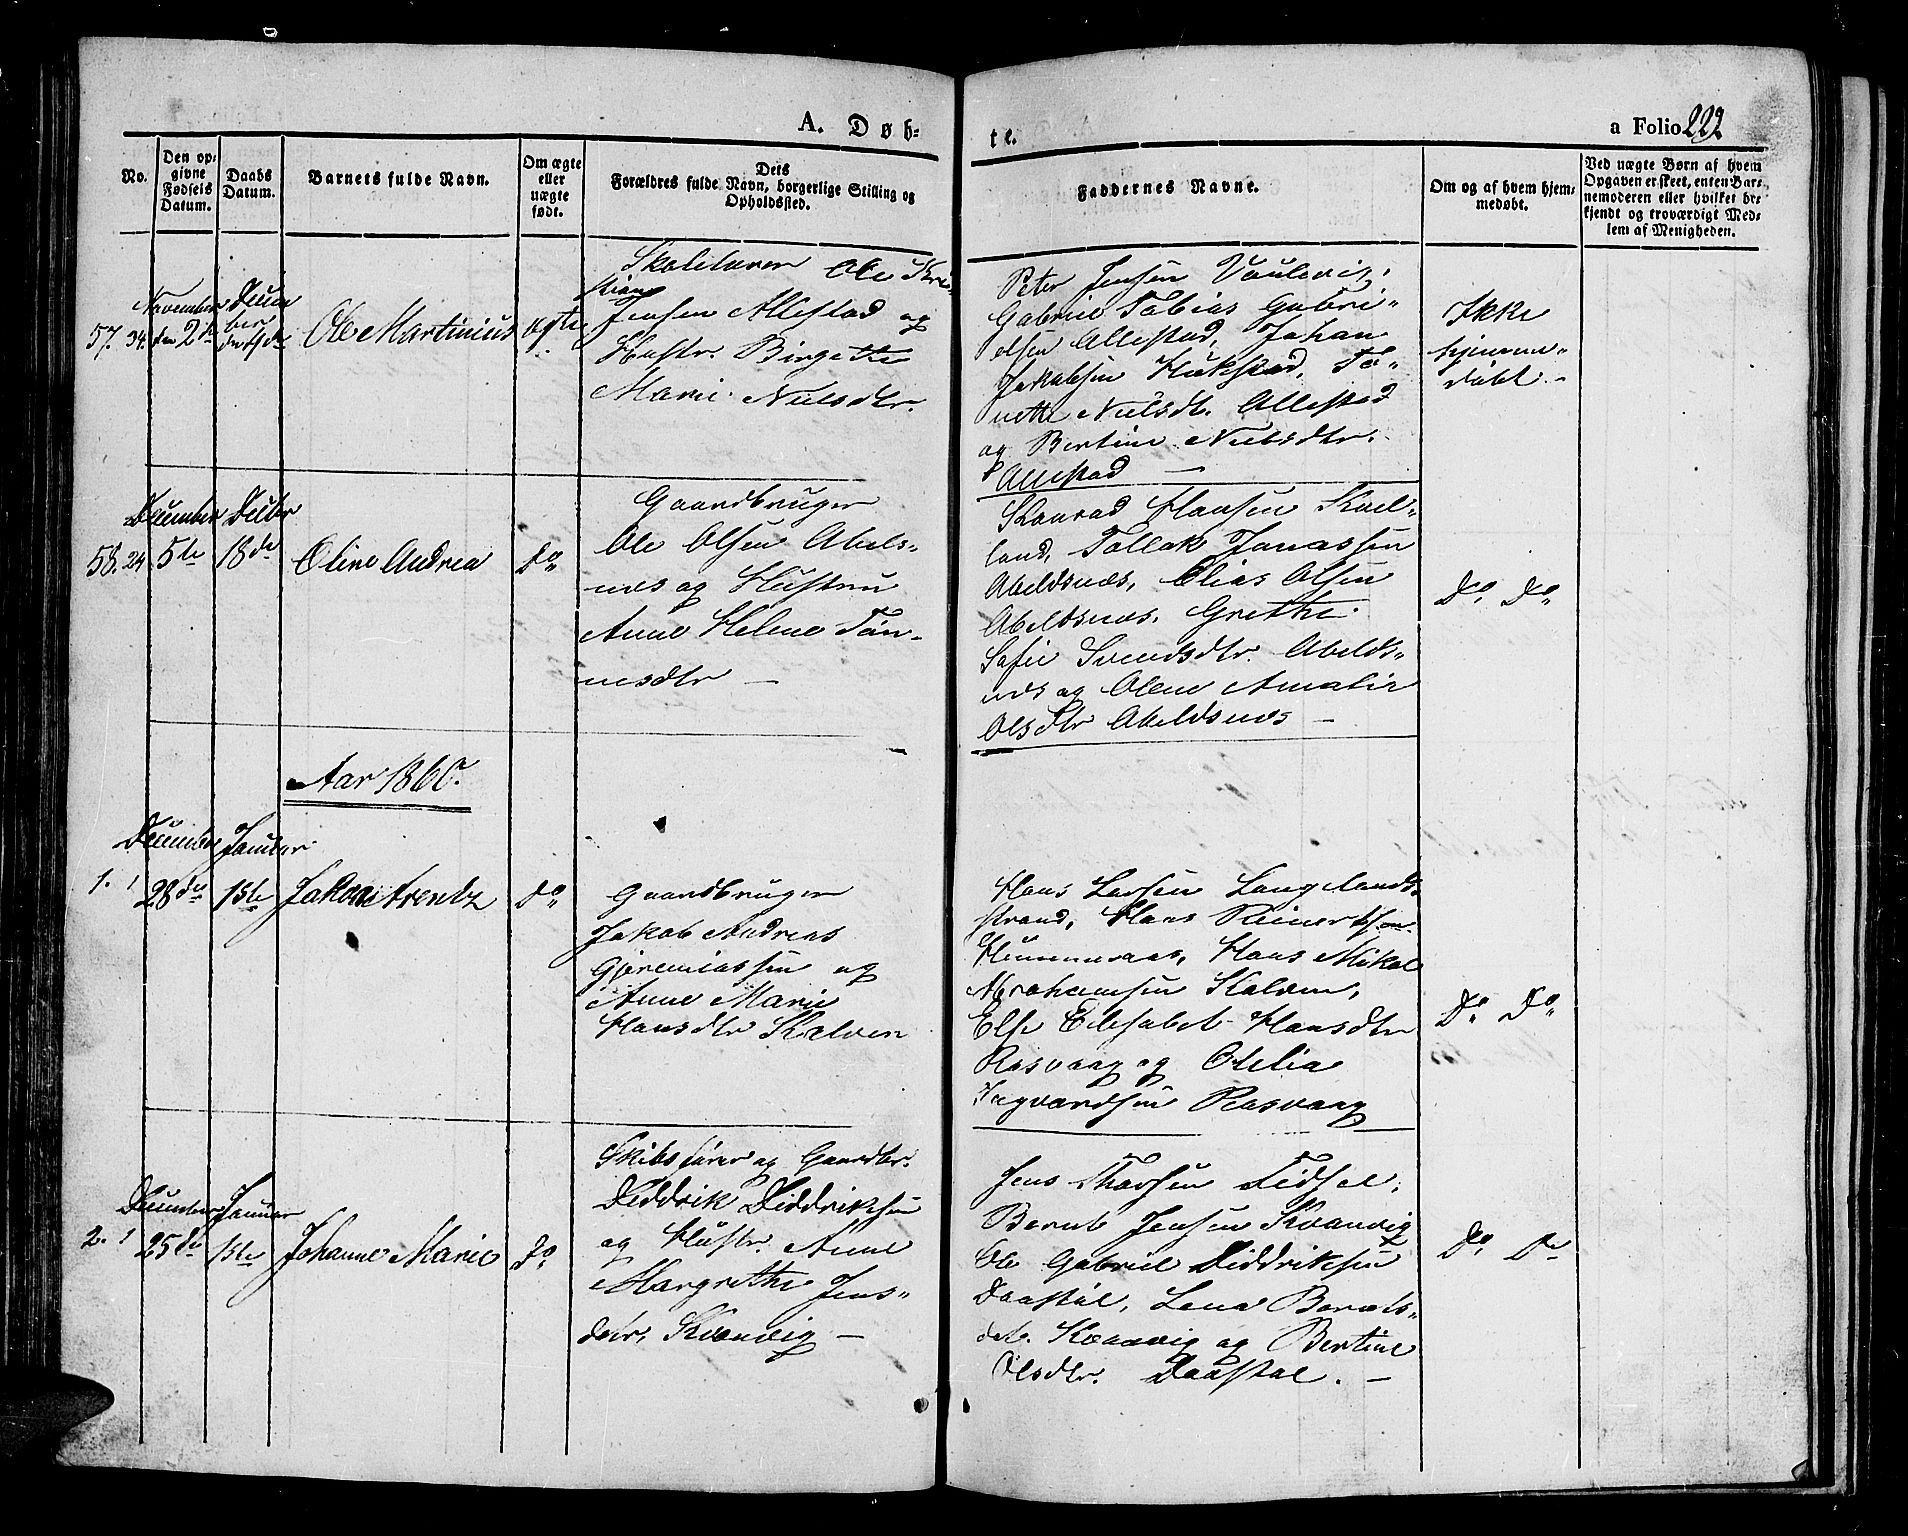 A. Døb-
te.
a Folio 222
No.
Den op-
givne
Fødsels
Datum.
Daabs
Datum.
Barnets fulde Navn.
Om ægte
eller
uægte
født.
Dets
Forældres fulde Navn, borgerlige Stilling og
Opholdssted.
Faddernes Navne.
Om og af hvem hjem-
medøbt.
Ved uægte Børn af hvem
Opgaven er skeet, enten Bar-
nemoderen eller hvilket be-
kjendt og troværdigt Med-
lem af Menigheden.
57. 34.
November
den 2de
Decem
ber
Ole Martinius
ægte
Skolelærer Ole Kri-
stian
Jensen Allestad og
Hustr. Birgethe
Marie Nielsdtr.
Peter Jensen
Gabriel Tobias Gabri-
elsen Allestad, Johan
Jakobsen
nette Nielsdt. Allestad
og Bertine Nielsdtr.
Allestad —
Ikke
hjemme-
døbt. -
58. 24
December
5te
Decbr
18de
Oline Andrea
Do
Gaardbruger
Ole Olsen Abels-
næs og Hustru
Anne Helene Tøn-
nesdtr —
Konrad Hansen Kvel-
land, Tollak Jonassen
Abeldsnæs, Elias Olsen
Abeldsnæs, Grethe
Sofie Svendsdtr. Abelds-
næs og Olene Amalie
Olsdtr Abeldsnæs —
Do. Do
Aar 1860.
1. 1
December
28de
Januar
1ste
Jakob Arentz
Do
Gaardbruger
Jakob Andreas
Gjeremiassen og
Anne Marie
Hansdtr Kalven
Hans Larsen Langelands-
strand, Hans Reinertsen
Hans Mikal
Abrahamsen Kalven,
Else Elisabet Hansdtr
Rasvaag og Otelia
Ingvardsen Rasvaag
Do. Do
2. 1
December
25de
Januar
1ste
Johanne Marie
Do
Skibsfører og Gaardbr.
Diddrik Diddriksen
og Hustr. Anne
Margrethe Jens-
datr. Kvanvig —
Jens Thorsen Tidsel,
Bernt Jensen Kvanvig
Ole Gabriel Diddriksen
Daastøl, Lena Bernts-
datr. Kvanvig og Bertine
Olsdtr. Daastøl. —
Do. Do